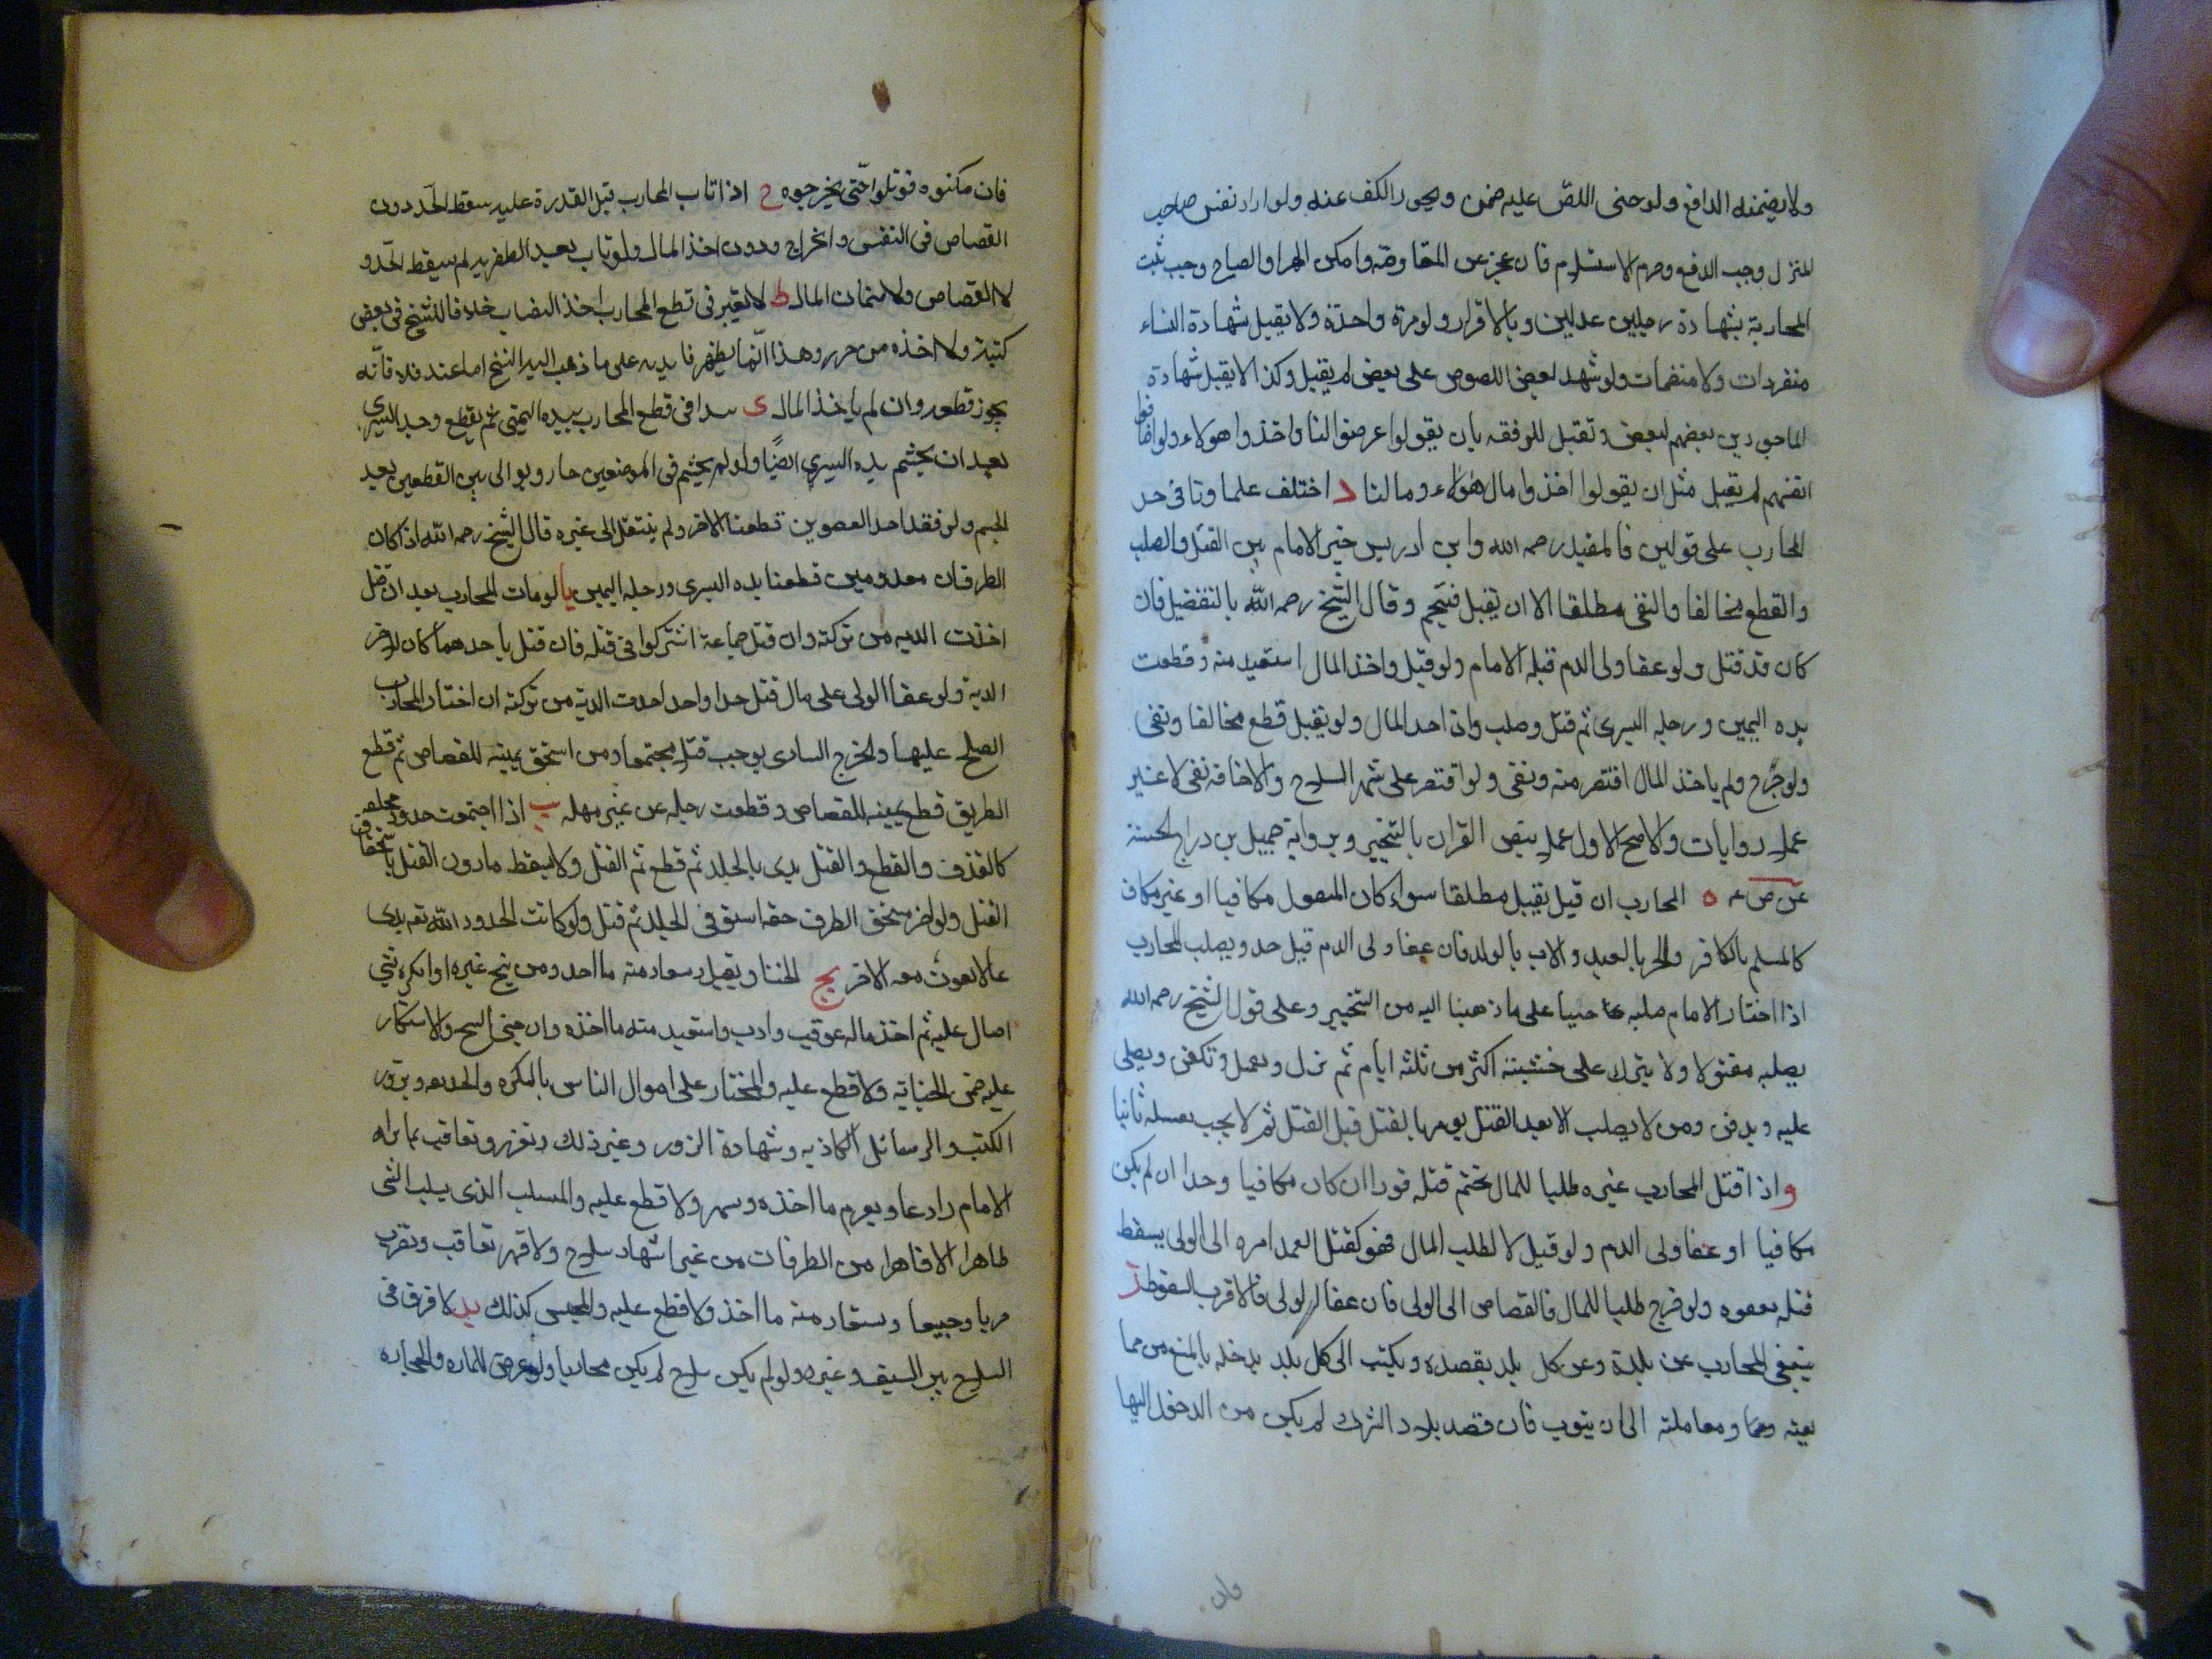 ولا يضمنه الدافع ولو جنى اللص عليه ضمن ويجوز الكف عنه ولو اراد نفس صاحب
المنزل وجب الدفع وحرم الاستسلام فان عجز عن المقاومة وامكن الهرب او الصياح وجب ثبت
المحاربة بشهادة رجلين عدلين وبالاقرار ولو مرة واحدة ولا يقبل شهادة النساء
منفردات ولا منضمات ولو شهد بعض اللصوص على بعض لم يقبل وكذا لا يقبل شهادة
الماخوذين بعضهم لبعض وتقبل للرفقه بان يقولوا عرضوا لنا واخذوا هولاء ولو اضافوا
انفسهم لم يقبل مثل ان يقولوا اخذوا مال هؤلاء ومالنا د اختلف علماونا فى حد
المحارب على قولين فالمفيد رحمه الله وابن ادريس خير الامام بين القتل والصلب
والقطع مخالفا والنفى مطلقا الا ان يقتل فيتحتم وقال الشيخ رحمه الله بالتفضيل فان
كان قد قتل ولو عفا ولى الدم قتله الامام ولو قتل واخذ المال استعيد منه وقطعت
يده اليمين ورجله اليسرى ثم قتل وصلب وان اخذ المال ولم يقتل قطع مخالفا ونفى
ولو جرح ولم ياخذ المال اقتص منه ونفى ولو اقتصر على شهر السلاح والاخافة نفى لا غير
عملا بروايات والاصح الاول عملا بنص القران بالتخيير وبرواية جميل بن دراج الحسنة
عن ص ع ه المحارب ان قتل يقتل مطلقا سواء كان المقتول مكافيا او غير مكاف
كالمسلم بالكافر والحر بالعبد والاب بالولد فان عفا ولى الدم قتل حدا ويصلب المحارب
اذا اختار الامام صلبه حيا على ما ذهبنا اليه من التخيير وعلى قول الشيخ رحمه الله
يصلبه مقتولا ولا يترك على خشبته اكثر من ثلثه ايام ثم نزل ويغسل وتكفن ويصلى
عليه ويدفن ومن لا يصلب الا بعد القتل يومر بالغسل قبل القتل ثم لا يجب تغسله ثانيا
و اذا قتل المحارب غيره طلبا للمال تحتم قتله قودا ان كان مكافيا وحدا ان لم يكن
مكافيا او عفا ولى الدم ولو قتل لا لطلب المال فهو كقتل العمد امره الى الولى يسقط
قتله بعفوه ولو جرح طلبا للمال فالقصاص الى الولى فان عفا الولى فالاقرب السقوط ز
ينبغى المحارب عن بلدة وعن كل بلد يقصده ويكتب الى كل بلد يدخله بالمنع من
ومعاملته الى ان يتوب فان قصد بلاد الشرك لم يمكن من الدخول اليها
فان مكنوه قوتلوا حتى يخرجوه ح اذا تاب المحارب قبل القدرة عليه سقط الحد دون
القصاص فى النفس والجراح ودون اخذ المال ولو تاب بعد الظفر به لم يسقط الحد و
لا القصاص ولا ضمان المال ط لا يعتبر فى قطع المحارب اخذ النصاب خلافا للشيخ فى بعض
كتبه ولا اخذه من حرز وهذا انما يظهر فائدته على ما ذهب اليه الشيخ اما عندنا فانه
يجوز قطعه وان لم ياخذ المال ى يبدا فى قطع المحارب بيده اليمنى ثم يقطع رجله اليسرى
بعد ان يحسم يده اليسرى ايضا ولو لم يحسم فى الموضعين جاز ويوالى بين القطعين بعد
الحسم ولو فقد احد العضوين قطعنا الاخر ولم ينتقل الى غيره قال الشيخ رحمه الله اذا كان
الطرفان معدومين قطعنا يده اليسرى ورجله اليمين يا لو مات المحارب بعد ان قتل
اخذت الديه من تركته وان قتل جماعة اشتركوا فى قتله فان قتل باحدهما كان للاخر
الدية ولو عفا الولى على مال قتل حدا واخذت الدية من تركته ان اختار المحارب
الصلح عليها والجرح السارى يوجب قتل مجتمعا ومن استحق يمينه للقصاص ثم قطع
الطريق قطع يمينه للقصاص وقطعت رجله من غير مهله يب اذا اجتمعت حدود مختلفه
كالقذف والقطع والقتل بدى بالجلد ثم قطع ثم القتل ولا يسقط ما دون القتل باستحقاق
القتل ولو اخر مستحق الطرف حقه استوفى الجلد ثم قتل ولو كانت الحدود لله تعه بدى
بما لا يفوت معه الاخر يج الخناق يقتل ويستعاد منه ما اخذ ومن بنج غيره او اسكره بشى
احتال عليه ثم اخذ ماله عوقب وادب واستعيد منه ما اخذه وان جنى البنج والاسكار
عليه ضمن الجناية ولا قطع عليه والمحتال على اموال الناس بالمكر والخديعه وتزوير
الكتب والرسائل الكاذبه وشهادة الزور وغير ذلك يعزر ويعاقب بما يراه
الامام رادعا ويغرم ما اخذه ويشهر ولا قطع عليه والمستلب الذى يسلب الشى
ظاهرا لا قاهرا من الطرقات من غير اشهار سلاح ولا قهر يعاقب ويضرب
ضربا وجيعا ويستعاد منه ما اخذ ولا قطع عليه والمختلس كذلك يد لا فرق فى
السلاح بين السيف وغيره ولو لم يكن سلاح لم يكن محاربا ولو عرض للمارة والحجارة
فان